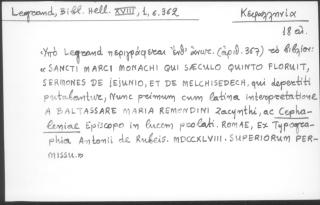 Legrand, Bibl. Hell. XVIII, 1, σ. 362
Κεφαλληνία
18 αἰ.
«Ὑπὸ Legrand περιγράφεται ὑπ' ἀριθ. (ἀριθ. 367) τὸ βιβλίον:
«SANCTI MARCI MONACHI QUI SÆCULO QUINTO FLORUIT,
SERMONES DE JEJUNIO, ET DE MELCHISEDECH, qui deperditi
putabantur, Nunc primum cum latina interpretatione
A BALTASSARE MARIA REMONDINI Zacynthi, ac Cepha-
leniae Episcopo in lucem prolati. ROMAE, Ex Typogra-
phia Antonii de Rubeis. MDCCXLVIII. SUPERIORUM PER-
MISSU.»